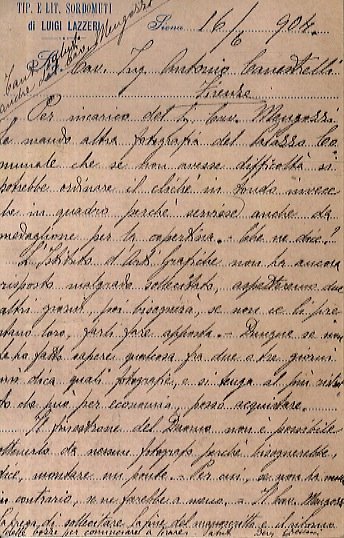 TIP. E LIT. SORDOMUTI
di LUIGI LAZZERI
Siena 16/6 904.
Tanti saluti
anche dal Cav. Mengozzi
Cav. Ing. Antonio Canestrelli
Firenze
Per incarico del Cav. Mengozzi
le mando altra fotografia del Palazzo Co
munale che se non avesse difficoltà si
potrebbe ordinare il cliché in tondo invece
che in quadro perché servisse anche da
medaglione per la copertina. Che ne dice?
L'Istituto d'Arti Grafiche non ha ancora
risposto malgrado sollecitato, aspetteremo due
altri giorni, poi bisognerà, se non ce li pre
stano loro, farli fare apposta. - Dunque se non
le ho fatto sapere qualcosa fra due o tre giorni
mi dica quali fotografie, e si tenga al più ristret
to che può per economia, posso acquistare.
Il finestrone del Duomo non è possibile
ottenerlo da nessun fotografo perché bisognerebbe,
dice, montare un ponte. - Per cui, se non ha nulla
in contrario, se ne farebbe a meno. - Il Cav. Mengozzi
la prega di sollecitare la fine del manoscritto e il ritorno
delle bozze per cominciare a tirare.